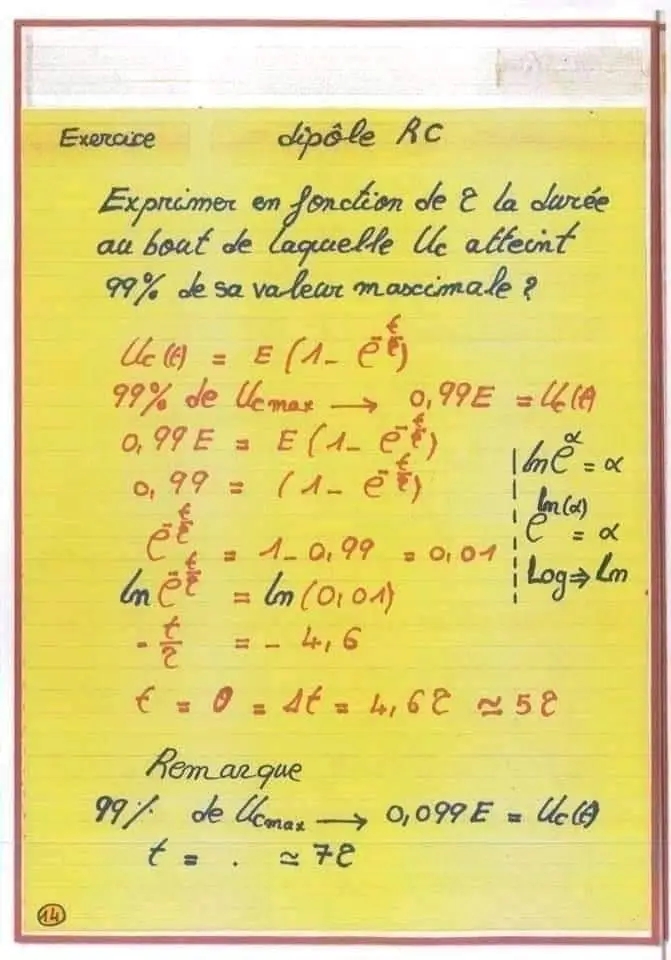 Exercice dipôle RC
Exprimer en fonction de τ la durée
au bout de laquelle Uc atteint
99% de sa valeur maximale ?
Uc(t) = E (1 - e^{-t/τ})
99% de Ucmax → 0,99E = Uc(t)
0,99E = E (1 - e^{-t/τ})
0,99 = (1 - e^{-t/τ})
e^{-t/τ} = 1 - 0,99 = 0,01
ln e^{-t/τ} = ln(0,01)
- t/τ = - 4,6
t = θ = Δt = 4,6τ ≃ 5τ
ln e^α = α
e^{ln(α)} = α
Log ⇒ Ln
Remarque
99% de Ucmax → 0,099E = Uc(t)
t = . ≃ 7τ
14